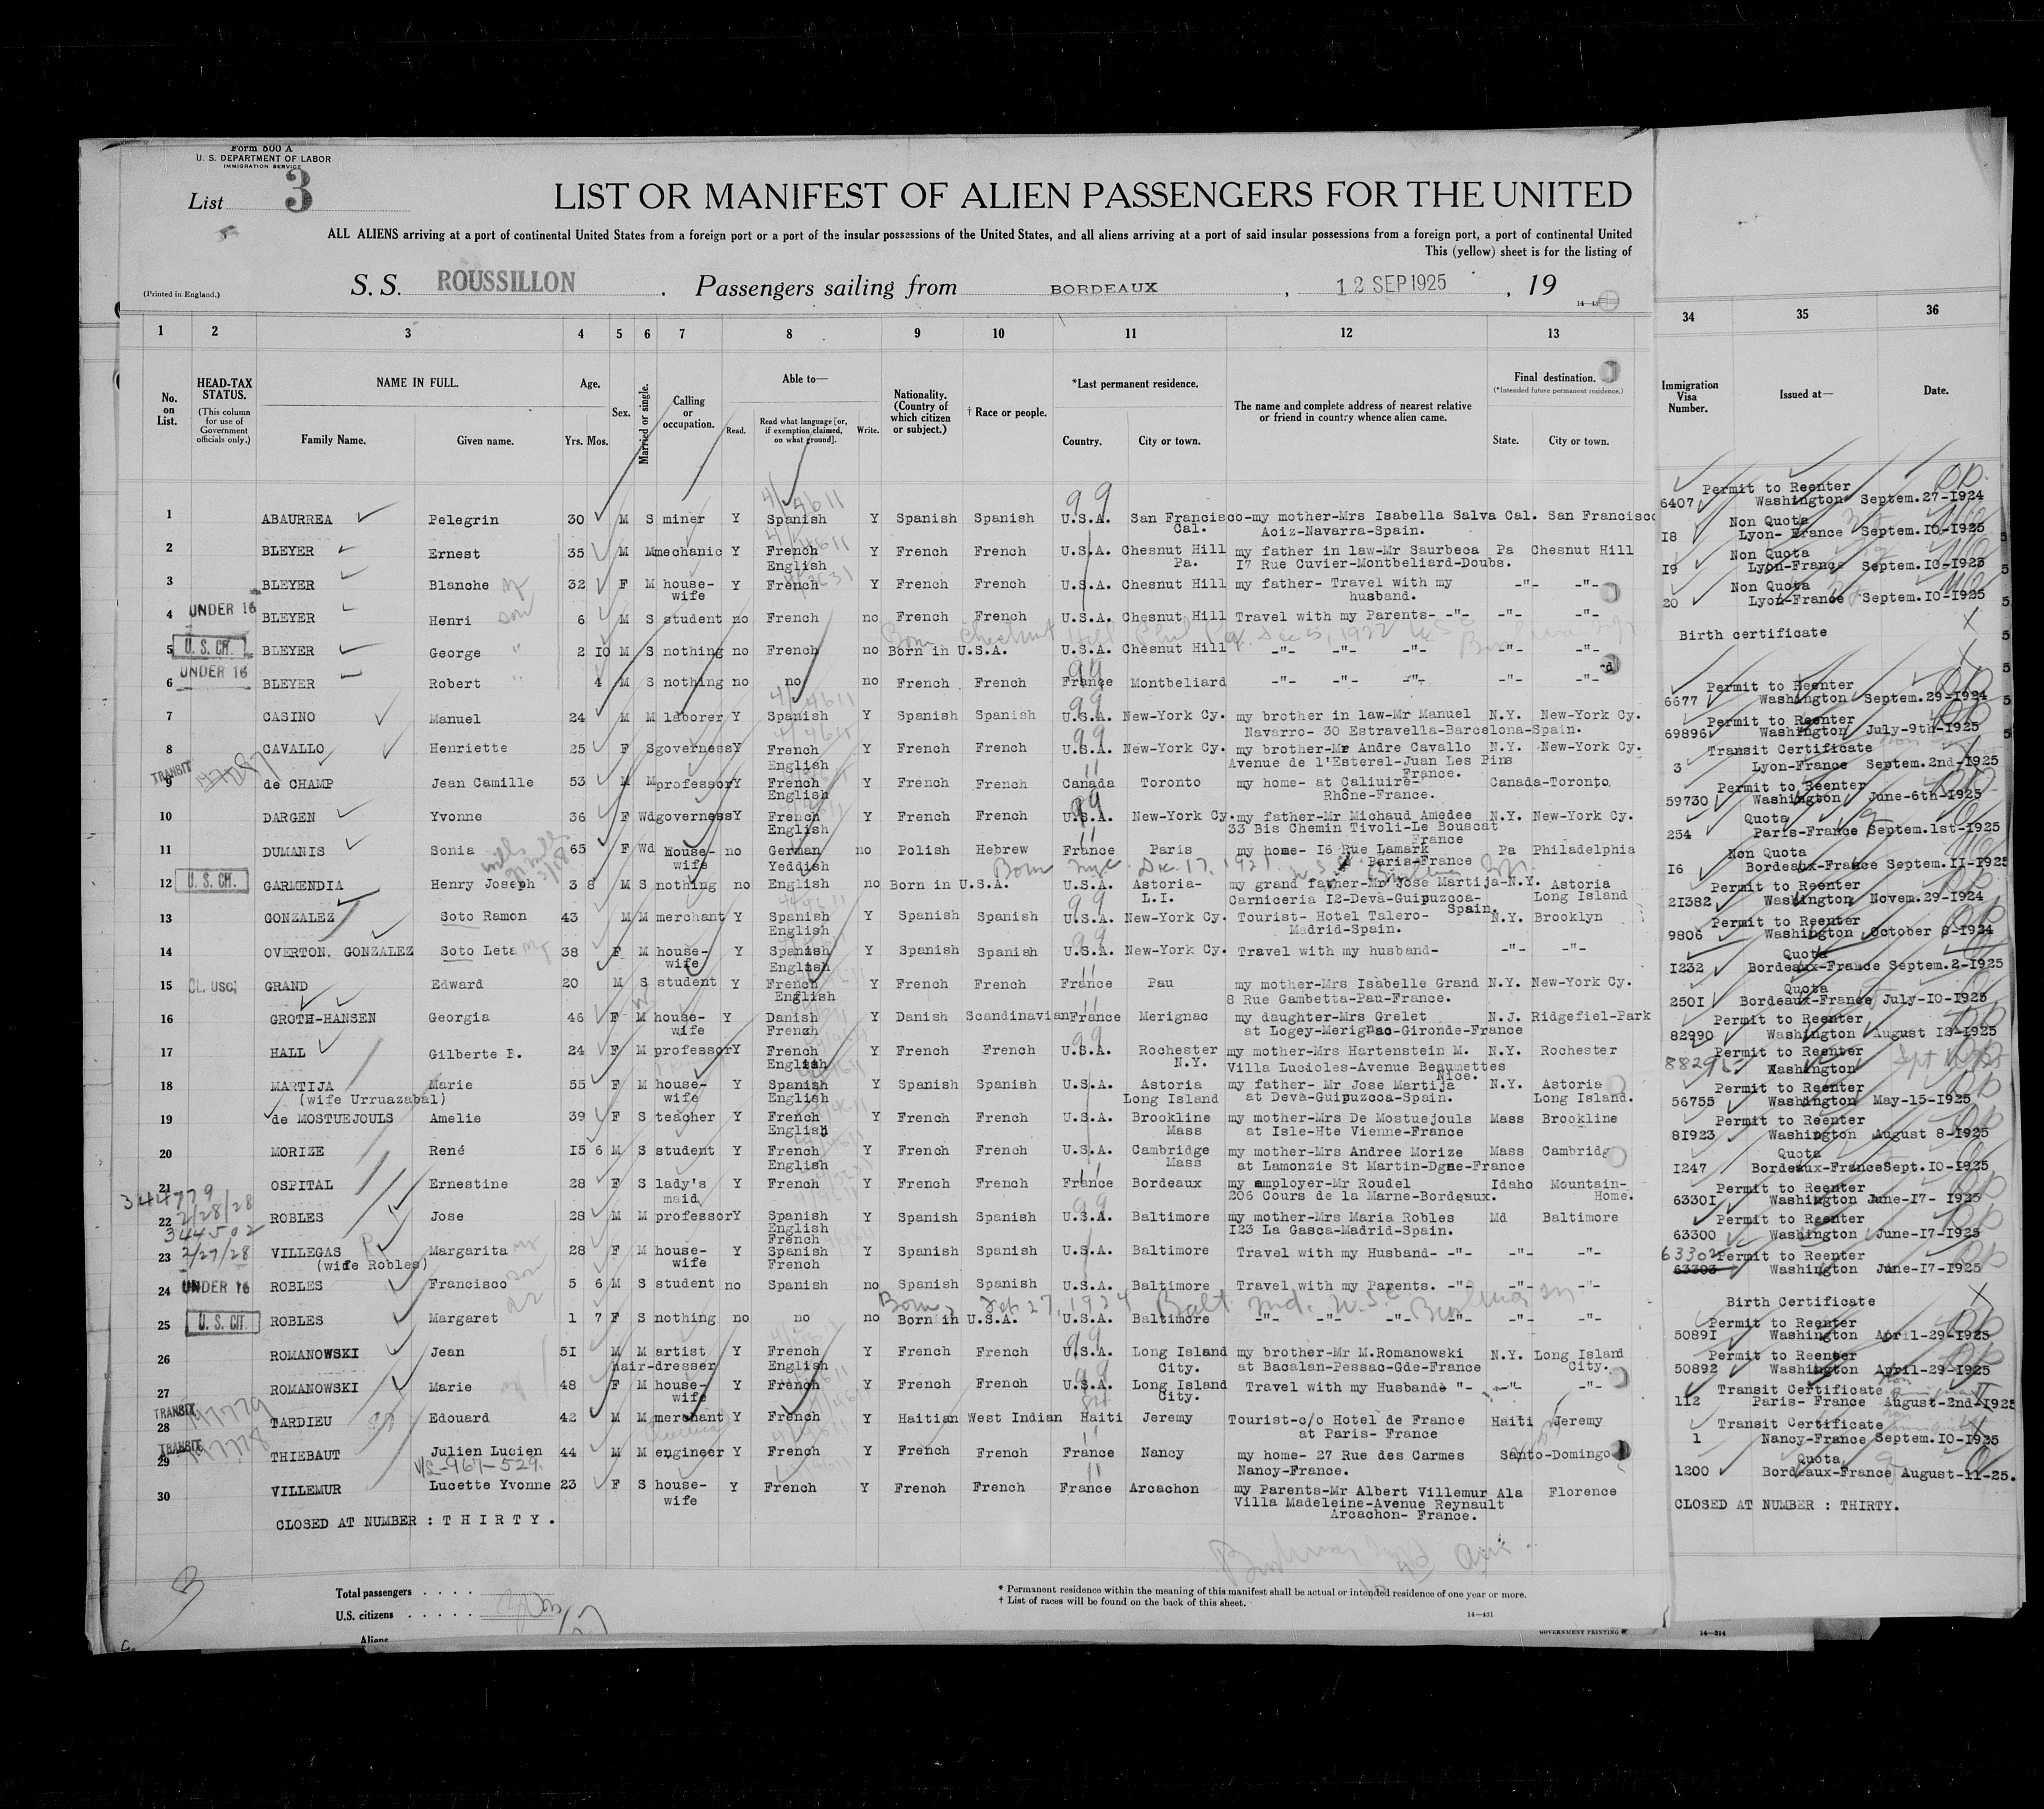 Form 500 A
U. S. DEPARTMENT OF LABOR
IMMIGRATION SERVICE
List 3
LIST OR MANIFEST OF ALIEN PASSENGERS FOR THE UNITED
ALL ALIENS arriving at a port of continental United States from a foreign port or a port of the insular possessions of the United States, and all aliens arriving at a port of said insular possessions from a foreign port, a port of continental United
This (yellow) sheet is for the listing of
(Printed in England.) S. S. ROUSSILLON . Passengers sailing from BORDEAUX , 12 SEP 1925 , 19
1 2 3 4 5 6 7 8 9 10 11 12 13 34 35 36
No. on List. HEAD-TAX STATUS. (This column for use of Government officials only.) NAME IN FULL. Family Name. Given name. Age. Yrs. Mos. Sex. Married or single. Calling or occupation. Able to— Read. Read what language [or, if exemption claimed, on what ground]. Write. Nationality. (Country of which citizen or subject.) † Race or people. *Last permanent residence. Country. City or town. The name and complete address of nearest relative or friend in country whence alien came. Final destination. (*Intended future permanent residence.) State. City or town. Immigration Visa Number. Issued at— Date.
Permit to Reenter
6407 Washington Septem.27-1924
1 ABAURREA Pelegrin 30 M S miner Y Spanish Y Spanish Spanish U.S.A. San Francisco-my mother-Mrs Isabella Salva Cal. San Francisco
Cal. Aoiz-Navarra-Spain.
Non Quota
18 Lyon- France Septem.10-1925
2 BLEYER Ernest 35 M M mechanic Y French Y French French U.S.A. Chesnut Hill my father in law-Mr Saurbeca Pa Chesnut Hill
English Pa. 17 Rue Cuvier-Montbeliard-Doubs.
Non Quota
19 Lyon-France Septem.10-1925
3 BLEYER Blanche 32 F M house- Y French Y French French U.S.A. Chesnut Hill my father- Travel with my -"- -"-
wife husband.
Non Quota
20 Lyon-France Septem.10-1925
UNDER 16
4 BLEYER Henri son 6 M S student no French no French French U.S.A. Chesnut Hill Travel with my Parents- -"- -"- -"-
Birth certificate
U. S. CIT.
5 BLEYER George " 2 10 M S nothing no French no Born in U.S.A. U.S.A. Chesnut Hill -"- -"- -"- -"- -"-
UNDER 16
6 BLEYER Robert " 4 M S nothing no no no French French France Montbeliard -"- -"- -"- -"- -"-
Permit to Reenter
6677 Washington Septem.29-1924
7 CASINO Manuel 24 M M laborer Y Spanish Y Spanish Spanish U.S.A. New-York Cy. my brother in law-Mr Manuel N.Y. New-York Cy.
Navarro- 30 Estravella-Barcelona-Spain.
Permit to Reenter
69896 Washington July-9th-1925
8 CAVALLO Henriette 25 F S governess Y French Y French French U.S.A. New-York Cy. my brother-Mr Andre Cavallo N.Y. New-York Cy.
English Avenue de l'Esterel-Juan Les Pins
France.
Transit Certificate
3 Lyon-France Septem.2nd-1925
TRANSIT
9 de CHAMP Jean Camille 53 M M professor Y French Y French French Canada Toronto my home- at Caliuire- Canada-Toronto
English Rhône-France.
Permit to Reenter
59730 Washington June-6th-1925
10 DARGEN Yvonne 36 F Wd governess Y French Y French French U.S.A. New-York Cy. my father-Mr Michaud Amedee N.Y. New-York Cy.
English 33 Bis Chemin Tivoli-Le Bouscat
France
Quota
254 Paris-France Septem.1st-1925
11 DUMANIS Sonia 65 F Wd House- no German no Polish Hebrew France Paris my home- 16 Rue Lamark Pa Philadelphia
wife Yeddish Paris-France
Non Quota
16 Bordeaux-France Septem.11-1925
U. S. CIT.
12 GARMENDIA Henry Joseph 3 8 M S nothing no English no Born in U.S.A. U.S.A. Astoria- my grand father-Mr Jose Martija-N.Y. Astoria
L.I. Carniceria 12-Deva-Guipuzcoa- Long Island
Spain
Permit to Reenter
21382 Washington Novem.29-1924
13 GONZALEZ Soto Ramon 43 M M merchant Y Spanish Y Spanish Spanish U.S.A. New-York Cy. Tourist- Hotel Talero- N.Y. Brooklyn
English Madrid-Spain.
Permit to Reenter
9806 Washington October 8-1924
14 OVERTON. GONZALEZ Soto Leta 38 F M house- Y Spanish Y Spanish Spanish U.S.A. New-York Cy. Travel with my husband- -"- -"-
wife English
Quota
1232 Bordeaux-France Septem.2-1925
15 GRAND Edward 20 M S student Y French Y French French France Pau my mother-Mrs Isabelle Grand N.Y. New-York Cy.
English 8 Rue Gambetta-Pau-France.
Quota
2501 Bordeaux-France July-10-1925
16 GROTH-HANSEN Georgia 46 F M house- Y Danish Y Danish Scandinavian France Merignac my daughter-Mrs Grelet N.J. Ridgefiel-Park
wife French at Logey-Merignac-Gironde-France
Permit to Reenter
82990 Washington August 13-1925
17 HALL Gilberte B. 24 F M professor Y French Y French French U.S.A. Rochester my mother-Mrs Hartenstein M. N.Y. Rochester
English N.Y. Villa Lucioles-Avenue Beaumettes
Nice.
Permit to Reenter
Washington
18 MARTIJA Marie 55 F M house- Y Spanish Y Spanish Spanish U.S.A. Astoria my father- Mr Jose Martija N.Y. Astoria
(wife Urruazabal) wife English Long Island at Deva-Guipuzcoa-Spain. Long Island.
Permit to Reenter
56755 Washington May-15-1925
19 de MOSTUEJOULS Amelie 39 F S teacher Y French Y French French U.S.A. Brookline my mother-Mrs De Mostuejouls Mass Brookline
English Mass at Isle-Hte Vienne-France
Permit to Reenter
81923 Washington August 8-1925
20 MORIZE René 15 6 M S student Y French Y French French U.S.A. Cambridge my mother-Mrs Andree Morize Mass Cambridg
English Mass at Lamonzie St Martin-Dgne-France
Quota
1247 Bordeaux-France Sept.10-1925
21 OSPITAL Ernestine 28 F S lady's Y French Y French French France Bordeaux my employer-Mr Roudel Idaho Mountain-
maid 206 Cours de la Marne-Bordeaux. Home.
344779
2/28/28
Permit to Reenter
63301 Washington June-17- 1925
22 ROBLES Jose 28 M M professor Y Spanish Y Spanish Spanish U.S.A. Baltimore my mother-Mrs Maria Robles Md Baltimore
English 123 La Gasca-Madrid-Spain.
French
344502
2/27/28
Permit to Reenter
63300 Washington June-17-1925
23 VILLEGAS Margarita 28 F M house- Y Spanish Y Spanish Spanish U.S.A. Baltimore Travel with my Husband- -"- -"- -"-
(wife Robles) wife French
63302 Permit to Reenter
63303 Washington June-17-1925
24 UNDER 16 ROBLES Francisco son 5 6 M S student no Spanish no Spanish Spanish U.S.A. Baltimore Travel with my Parents. -"- -"- -"-
Born Feb 27, 1924 Balt. Md.
Birth Certificate
25 U. S. CIT. ROBLES Margaret 1 7 F S nothing no no no Born in U.S.A. U.S.A. Baltimore -"- -"- -"- -"- -"- -"-
Permit to Reenter
50891 Washington April-29-1925
26 ROMANOWSKI Jean 51 M M artist Y French Y French French U.S.A. Long Island my brother-Mr M.Romanowski N.Y. Long Island
hair-dresser English City. at Bacalan-Pessac-Gde-France City.
Permit to Reenter
50892 Washington April-29-1925
27 ROMANOWSKI Marie 48 F M house- Y French Y French French U.S.A. Long Island Travel with my Husband -"- -"- -"-
wife City.
Transit Certificate
112 Paris- France August-2nd-1925
TRANSIT
28 TARDIEU Edouard 42 M M merchant Y French Y Haitian West Indian Haiti Jeremy Tourist-c/o Hotel de France Haiti Jeremy
at Paris- France
Transit Certificate
1 Nancy-France Septem.10-1925
TRANSIT
29 THIEBAUT Julien Lucien 44 M M engineer Y French Y French French France Nancy my home- 27 Rue des Carmes Santo-Domingo
Nancy-France.
Quota
1200 Bordeaux-France August-11-25.
30 VILLEMUR Lucette Yvonne 23 F S house- Y French Y French French France Arcachon my Parents-Mr Albert Villemur Ala Florence
wife Villa Madeleine-Avenue Reynault
Arcachon- France.
CLOSED AT NUMBER : THIRTY.
CLOSED AT NUMBER : T H I R T Y .
Total passengers . . . .
U.S. citizens . . . . .
Aliens
* Permanent residence within the meaning of this manifest shall be actual or intended residence of one year or more.
† List of races will be found on the back of this sheet.
14—431
GOVERNMENT PRINTING
14—214